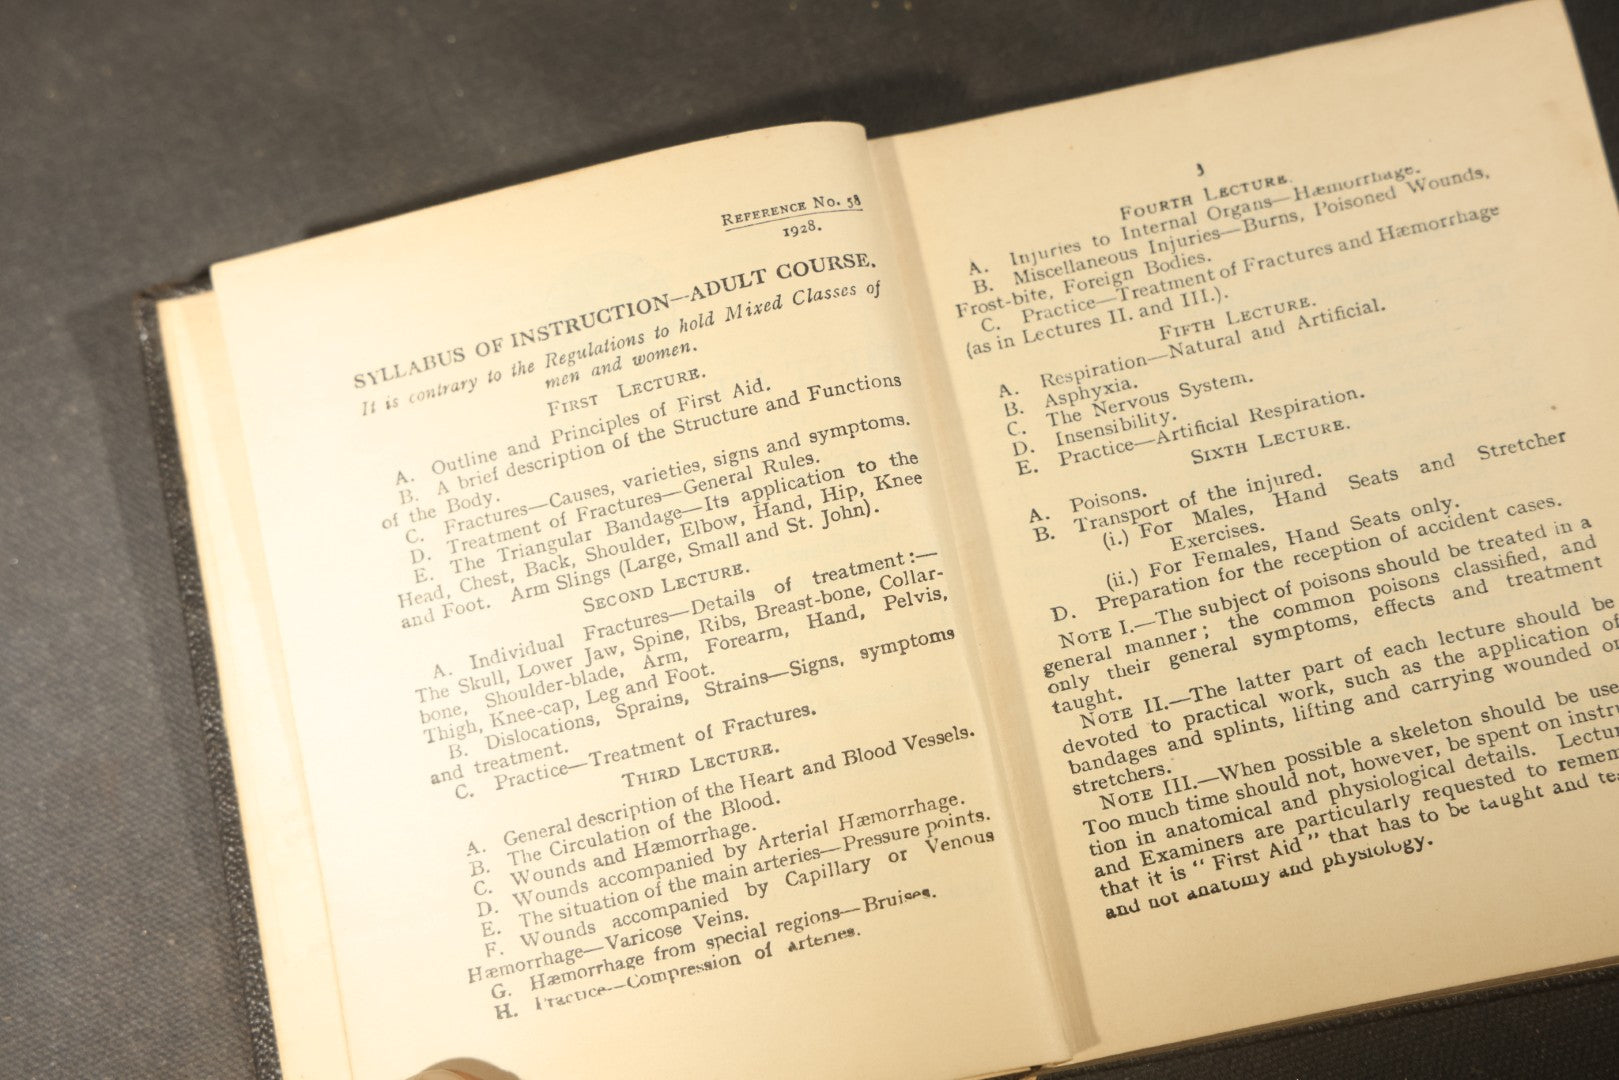 REFERENCE No. 58
1928.
SYLLABUS OF INSTRUCTION—ADULT COURSE.
It is contrary to the Regulations to hold Mixed Classes of
men and women.
FIRST LECTURE.
A. Outline and Principles of First Aid.
B. A brief description of the Structure and Functions
of the Body.
C. Fractures—Causes, varieties, signs and symptoms.
D. Treatment of Fractures—General Rules.
E. The Triangular Bandage—Its application to the
Head, Chest, Back, Shoulder, Elbow, Hand, Hip, Knee
and Foot. Arm Slings (Large, Small and St. John).
SECOND LECTURE.
A. Individual Fractures—Details of treatment:—
The Skull, Lower Jaw, Spine, Ribs, Breast-bone, Collar-
bone, Shoulder-blade, Arm, Forearm, Hand, Pelvis,
Thigh, Knee-cap, Leg and Foot.
B. Dislocations, Sprains, Strains—Signs, symptoms
and treatment.
C. Practice—Treatment of Fractures.
THIRD LECTURE.
A. General description of the Heart and Blood Vessels.
B. The Circulation of the Blood.
C. Wounds and Hæmorrhage.
D. Wounds accompanied by Arterial Hæmorrhage.
E. The situation of the main arteries—Pressure points.
F. Wounds accompanied by Capillary or Venous
Hæmorrhage—Varicose Veins.
G. Hæmorrhage from special regions—Bruises.
H. Practice—Compression of arteries.
3
FOURTH LECTURE.
A. Injuries to Internal Organs—Hæmorrhage.
B. Miscellaneous Injuries—Burns, Poisoned Wounds,
Frost-bite, Foreign Bodies.
C. Practice—Treatment of Fractures and Hæmorrhage
(as in Lectures II. and III.).
FIFTH LECTURE.
A. Respiration—Natural and Artificial.
B. Asphyxia.
C. The Nervous System.
D. Insensibility.
E. Practice—Artificial Respiration.
SIXTH LECTURE.
A. Poisons.
B. Transport of the injured.
(i.) For Males, Hand Seats and Stretcher
Exercises.
(ii.) For Females, Hand Seats only.
D. Preparation for the reception of accident cases.
NOTE I.—The subject of poisons should be treated in a
general manner; the common poisons classified, and
only their general symptoms, effects and treatment
taught.
NOTE II.—The latter part of each lecture should be
devoted to practical work, such as the application of
bandages and splints, lifting and carrying wounded on
stretchers.
NOTE III.—When possible a skeleton should be use
Too much time should not, however, be spent on instru
tion in anatomical and physiological details. Lectur
and Examiners are particularly requested to remem
that it is "First Aid" that has to be taught and te
and not anatomy and physiology.